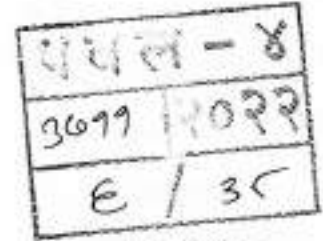 पवल - ४
३७११ | २०२२
६ / ३८